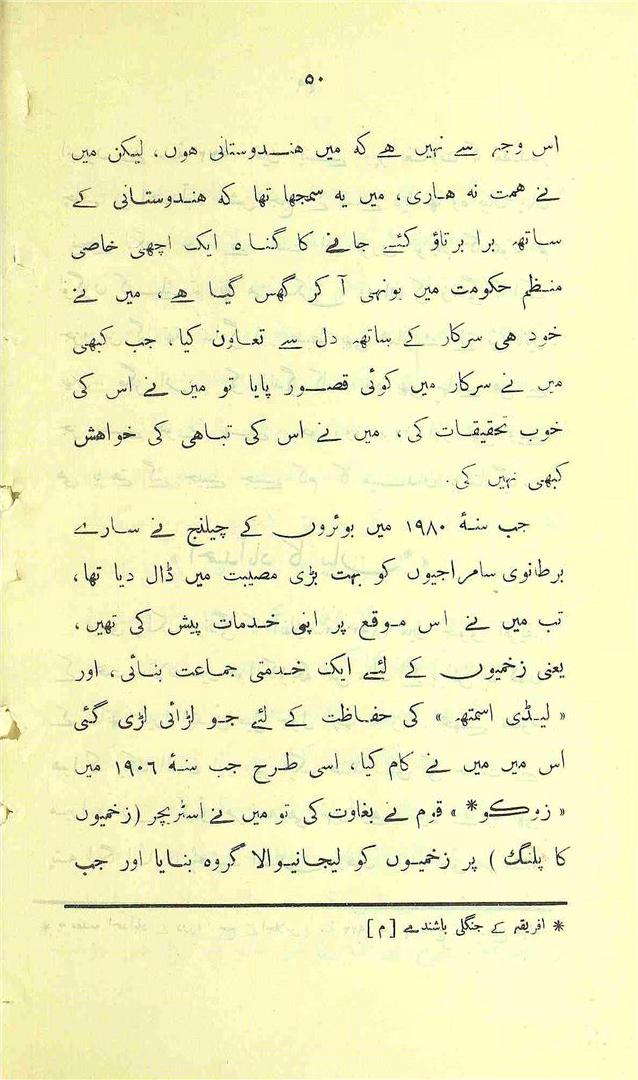 ۵۰
اس وجہ سے نہیں ہے کہ میں ہندوستانی ہوں، لیکن میں
نے ہمت نہ ہاری، میں یہ سمجھا تھا کہ ہندوستانی کے
ساتھ برا برتاؤ کئے جانے کا گناہ ایک اچھی خاصی
منظم حکومت میں یونہی آ کر گھس گیا ہے، میں نے
خود ہی سرکار کے ساتھ دل سے تعاون کیا، جب کبھی
میں نے سرکار میں کوئی قصور پایا تو میں نے اس کی
خوب تحقیقات کی، میں نے اس کی تباہی کی خواہش
کبھی نہیں کی.
جب سنۂ ۱۹۸۰ میں بوئروں کے چیلنج نے سارے
برطانوی سامراجیوں کو بہت بڑی مصیبت میں ڈال دیا تھا،
تب میں نے اس موقع پر اپنی خدمات پیش کی تھیں،
یعنی زخمیوں کے لئے ایک خدمتی جماعت بنائی، اور
« لیڈی اسمتھ » کی حفاظت کے لئے جو لڑائی لڑی گئی
اس میں میں نے کام کیا، اسی طرح جب سنۂ ۱۹۰۶ میں
« زوکو* » قوم نے بغاوت کی تو میں نے اسٹریچر (زخمیوں
کا پلنگ) پر زخمیوں کو لیجانیوالا گروہ بنایا اور جب
* افریقہ کے جنگلی باشندے [م]